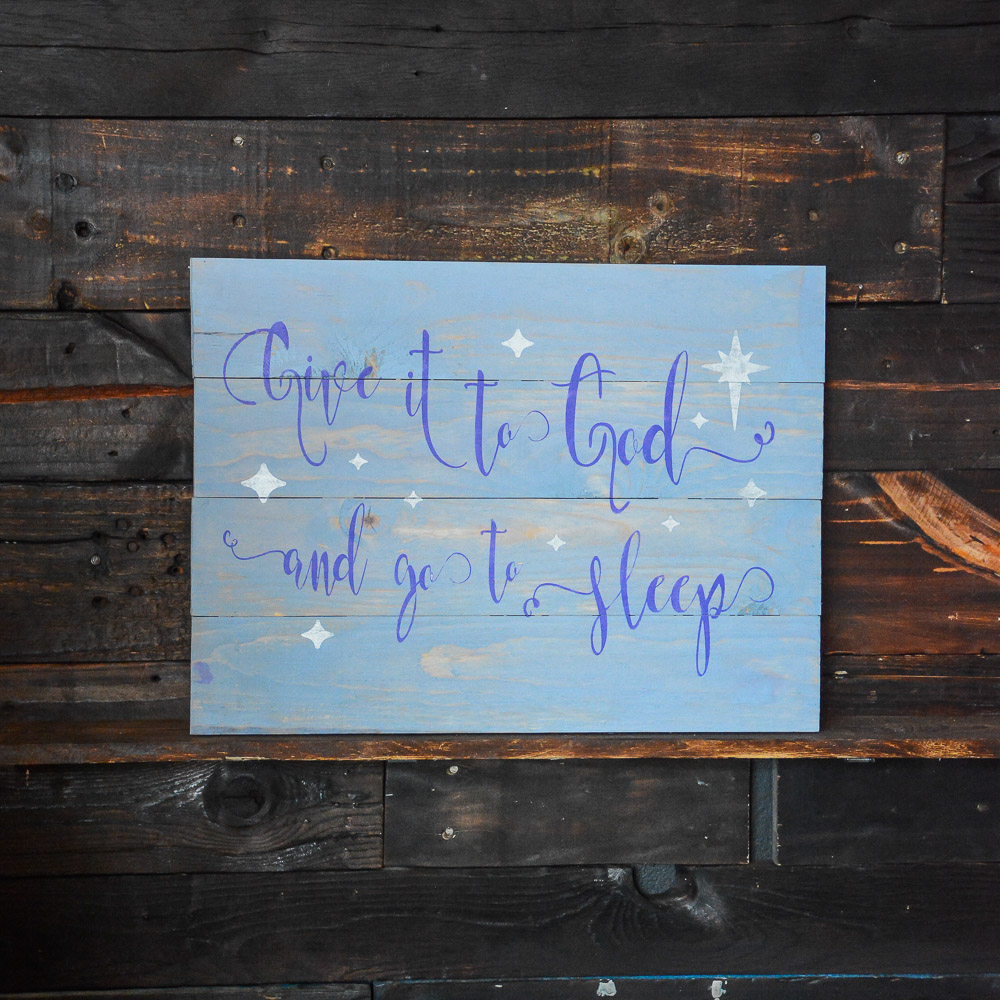 Give it to God
and go to sleep